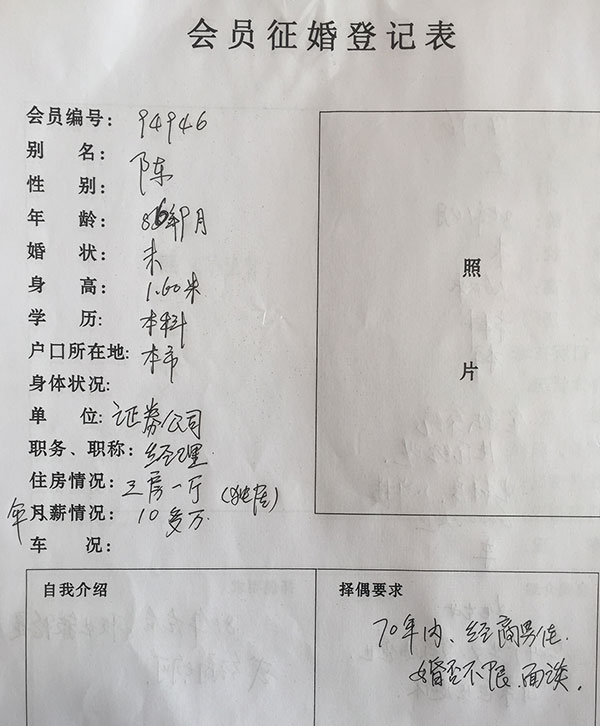 会员征婚登记表
会员编号: 94946
别 名: 陈
性 别:
年 龄: 86年9月
婚 状: 未
身 高: 1.60米
学 历: 本科
户口所在地: 本市
身体状况:
单 位: 证券公司
职务、职称: 经理
住房情况: 三房一厅 (独居)
年月薪情况: 10多万
车 况:
照
片
自我介绍
择偶要求
70年内、经商男住.
婚否不限.面谈.